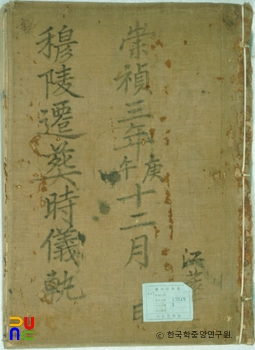 崇禎三年庚午十二月 日
穆陵遷葬時儀軌
江華
© 한국학중앙연구원